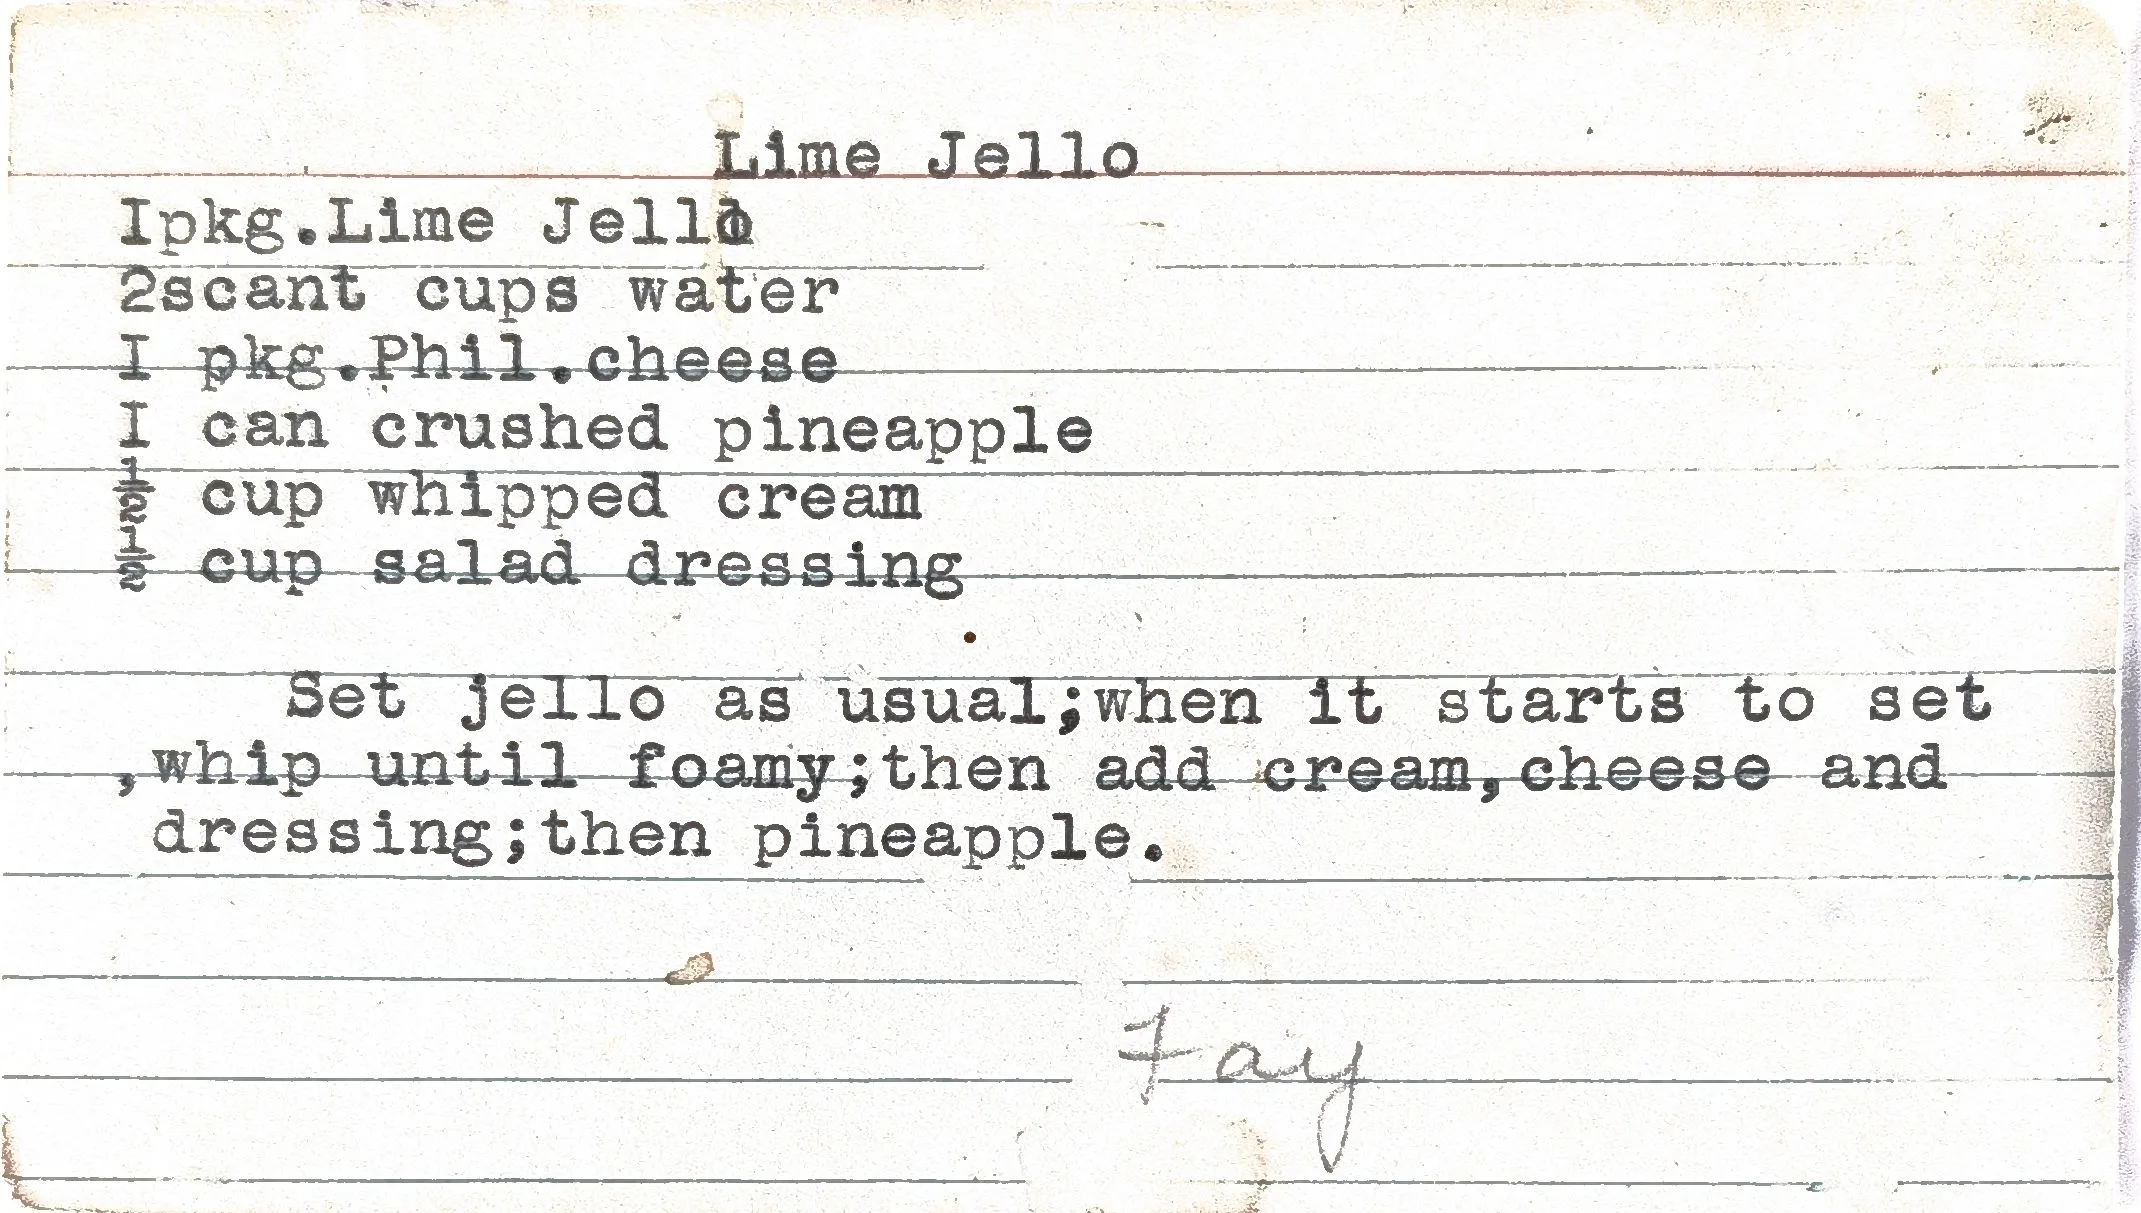 Lime Jello
Ipkg.Lime Jello
2scant cups water
I pkg.Phil.cheese
I can crushed pineapple
½ cup whipped cream
½ cup salad dressing
Set jello as usual;when it starts to set
,whip until foamy;then add cream,cheese and
dressing;then pineapple.
Fay